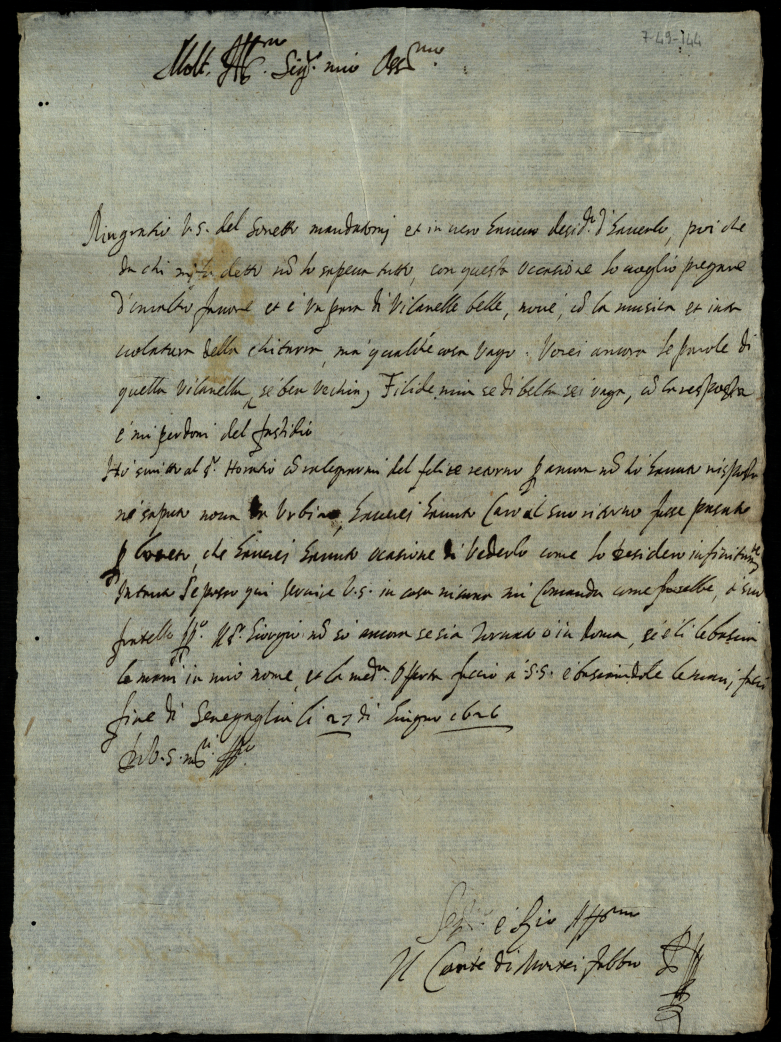 7-49-144
Molt. Ill.re Sig.r mio Oss.mo
Ringratio V.S. del sonetto mandatomi et in vero havevo desid.o d'haverlo, poi che
da chi detto nō lo sapeva tutto, con questa occasione lo voglio pregare
d'un altro favore et è un paro di Vilanelle belle, nove, cō la musica et inta
volatura della chitarra, ma qualche cosa vago. Vorei ancora le parole di
quella Vilanella, se ben vechia, Filide mia se di beltà sei vaga, cō la resposta
e mi perdoni del fastidio
Hò scritto al S.r Horatio cō ralegrarmi del felice retorno ancora nō hò havuto risposta
ne saputo nova Urbino, haverei havuto caro il suo ritorno fusse passato
p Loreto, che haverei havuto ocasione di vederlo come lo desidero infinitam.te
Intanto se posso qui servire V.S. in cosa niuna mi comanda come, à suo
fratello Il S.r Giorgio nō sò ancora se sia tornato ò in Roma, se è lì le bascia
le mani in mio nome, et la med.ma offerta faccio à S.S. e basciandole le mani, facio
fine di Senegaglia li 27 di Giugno 1626
Di V.S. m.to Ill.re
Ser. e Zio Aff.mo
Il Conte di Montefabbri